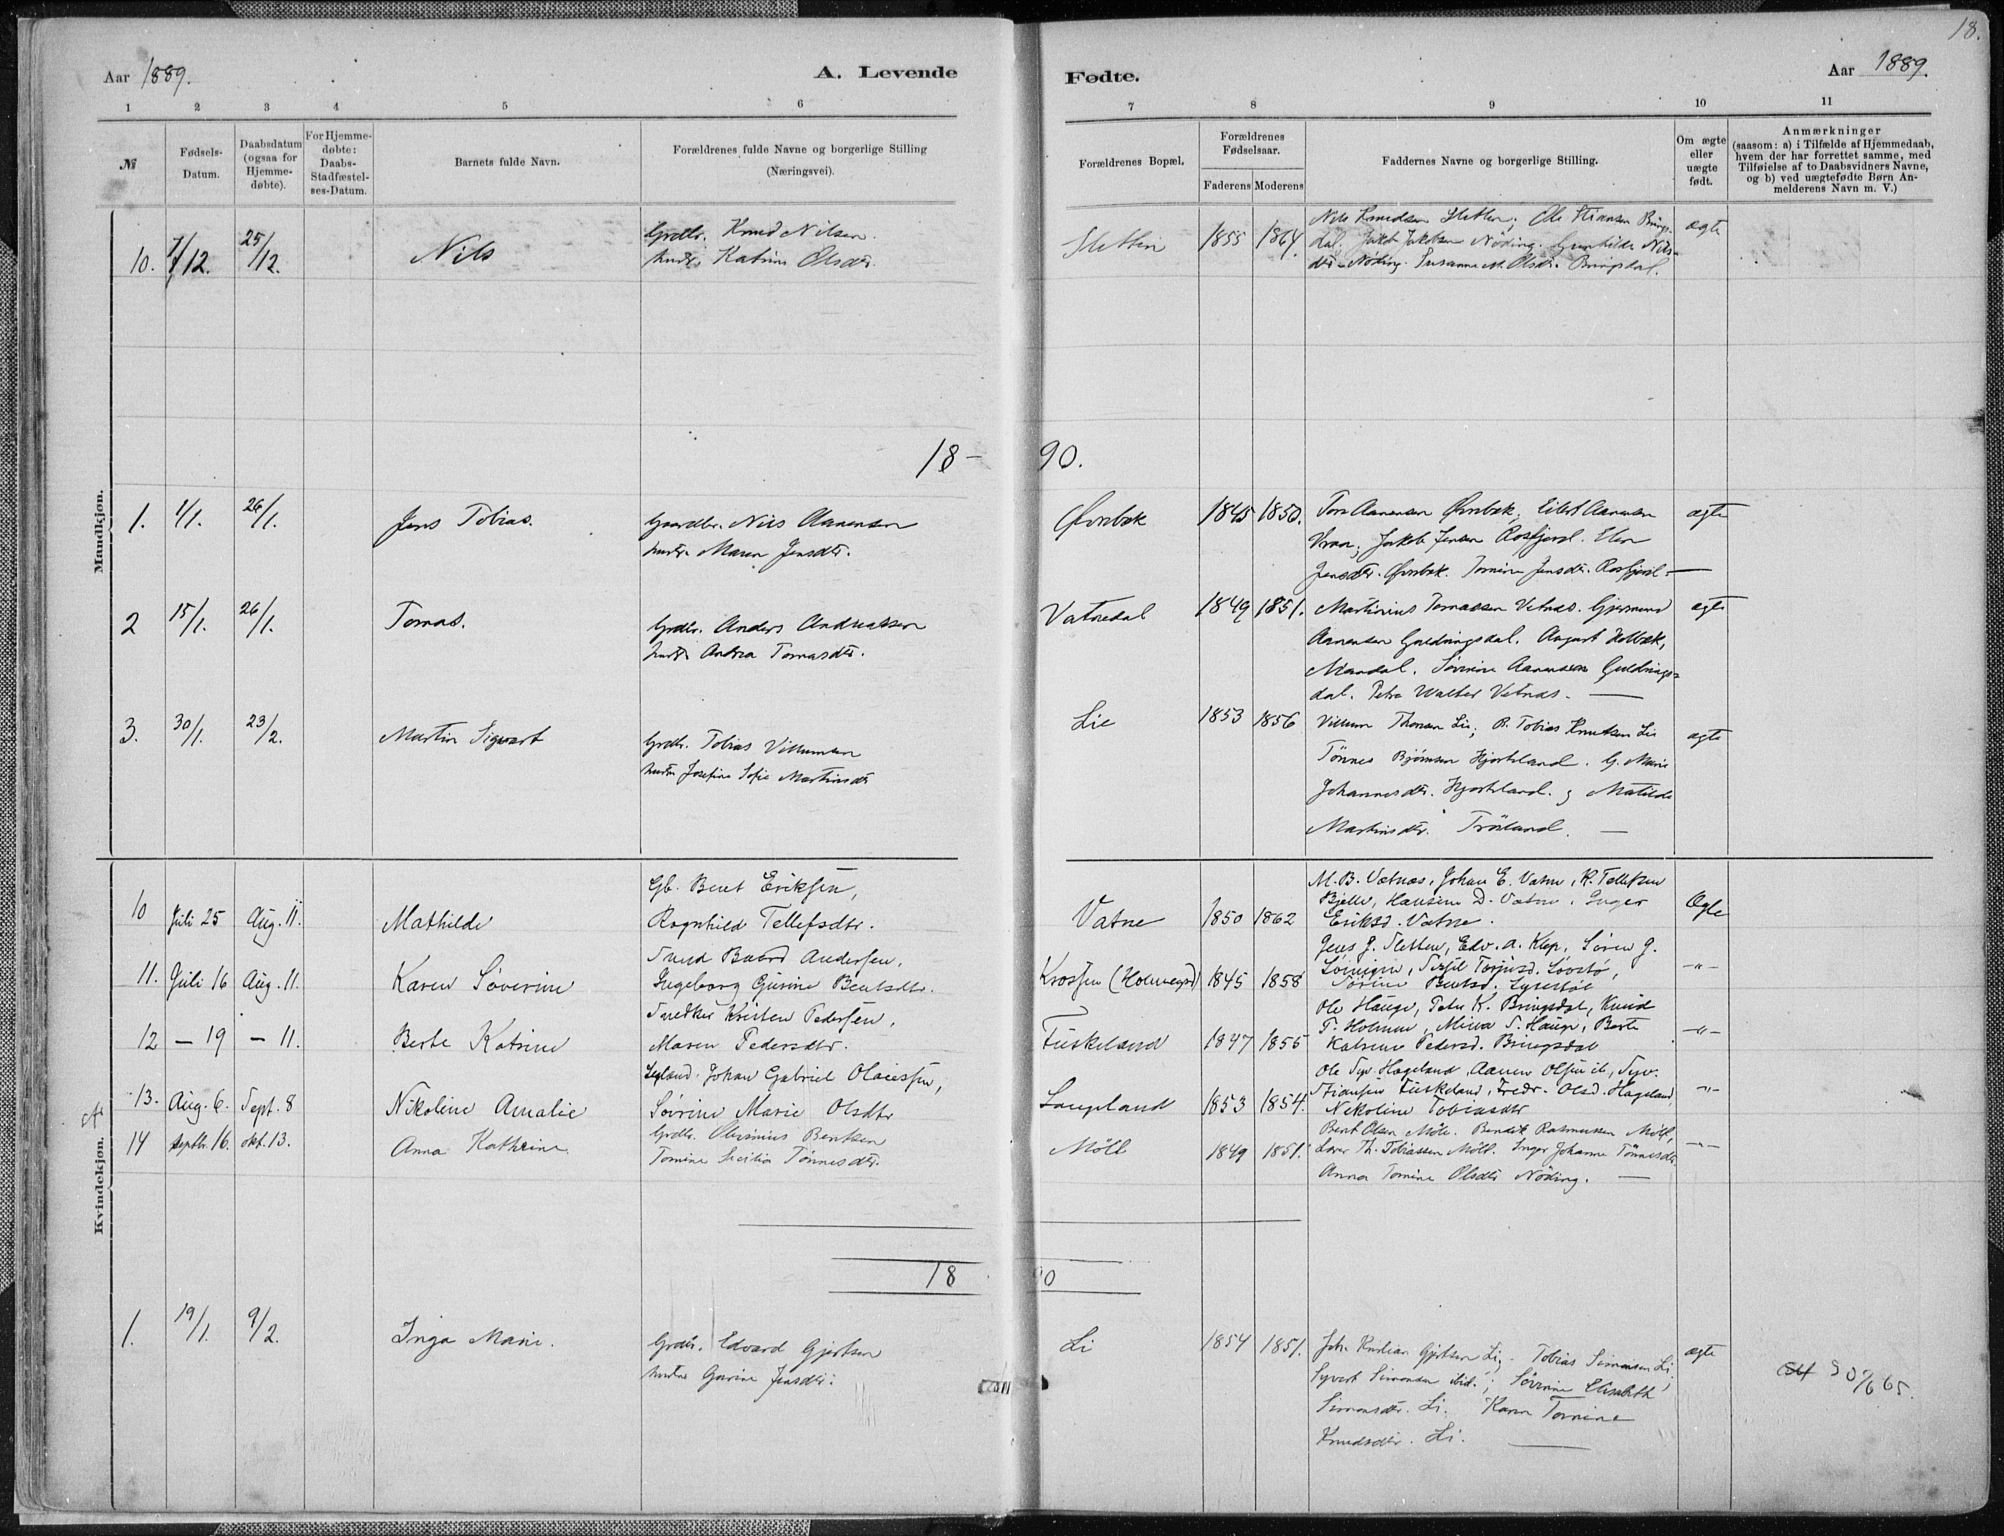 18.
Aar 1889.
A. Levende
Fødte.
Aar 1889.
1 2 3 4 5 6 7 8 9 10 11
№
Fødsels-Datum.
Daabsdatum (ogsaa for Hjemme-døbte).
For Hjemme-døbte: Daabs-Stadfæstel-ses-Datum.
Barnets fulde Navn.
Forældrenes fulde Navne og borgerlige Stilling
(Næringsvei).
Forældrenes Bopæl.
Forældrenes Fødselsaar.
Faderens Moderens
Faddernes Navne og borgerlige Stilling.
Om ægte eller uægte født.
Anmærkninger
(saasom: a) i Tilfælde af Hjemmedaab,
hvem der har forrettet samme, med
Tilføielse af to Daabsvidners Navne,
og b) ved uægtefødte Børn An-
melderens Navn m. V.)
Mandkjøn.
10. 7/12. 25/12. Nils
Grdbr. Knud Nilsen
hustr. Katrine Olsdtr.
Slettin 1855 1864.
Nils Knudsen Sletten. Ole Stiansen Brings-
dal. Jakob Jakobsen Nøding. Gunhilde Nils-
dtr. Nøding. Susanne M. Olsdtr. Bringsdal.
ægte
18-90.
1. 1/1. 26/1. Jens Tobias.
Gaardbr. Nils Aanensen
hustr. Maren Jensdtr.
Øvrebøk 1845 1850.
Tore Aanensen Øvrebøk; Eilert Aanensen
Vraa; Jakob Jensen Rosfjord. Elen
Jensdtr. Øvrebøk. Tomine Jensdtr. Rosfjord.—
ægte
2 15/1. 26/1. Tomas.
Grdbr. Anders Andreassen
hustr. Andrea Tomasdtr.
Vatnedal 1849 1851.
Martinius Tomassen Vetnes. Gjermund
Aanensen Guldringsdal. August Holbæk,
Mandal. Sørine Aanensen Guldrings=
dal. Petra Walter Vetnes. —
ægte
3. 30/1. 23/2. Martin Sigvart
Grdbr. Tobias Villumsen
hustr. Josefine Sofie Martinsdtr
Lie 1853 1856
Villum Thorsen Lie; B. Tobias Knutsen Lie
Tønnes Bjørnsen Hjorteland. G. Marie
Johannesdtr. Hjorteland. & Matilde
Martinsdtr. Trøland. —
ægte
Kvindekjøn.
10 Juli 25 Aug. 11. Mathilde
Gb. Bent Eriksen,
Ragnhild Tellefsdtr.
Vatne 1850 1862
M. B. Vatnes, Johan E. Vatne, K. Tellefsen
Bjelle, Hansine D. Vatne, Inger
Eriksd. Vatne.
Ægte
11. Juli 16 Aug. 11. Karen Søverine
Svend Baard Andersen,
Ingeborg Gurine Bentsdtr.
Krossen (Holmegsd) 1845 1858
Jens J. Sletten, Edv. A. Klep, Søren J.
—"—
12 — 19 — 11. Berte Katrine
Snedker Kristen Pedersen,
Maren Pedersdtr.
Fuskeland 1847 1855
Ole Hauge, Peter K. Bringsdal, Knud
T. Holmen, Mina S. Hauge, Berte
Katrine Pedersd. Bringsdal
—"—
13. Aug. 6. Sept. 8 Nikoline Amalie
Johan Gabriel Olaessen,
Sørine Marie Olsdtr
Laugeland 1853 1854.
Ole Syv. Hageland, Aanen Olsen ib, Syv.
Stiansen Fuskeland, Fredr. Olsd. Hageland,
Nikoline Tobiasdtr
—"—
14 septbr. 16. okt. 13. Anna Kathrine
Grdbr. Olusinius Bentsen
Tomine Sicilia Tønnesdtr.
Möll 1849 1851.
Bernt Olsen Möll. Bendik Rasmussen Möll,
Lars Th. Tobiassen Möll. Inger Johanne Tønnesdtr
Anna Tomine Olsdtr Nöding. —
—"—
18 90
1. 19/1. 9/2. Inga Marie.
Grdbr. Edvard Gjertsen
hustr Gurine Jensdtr.
Li 1854 1851.
Johs Kristian Gjertsen Li. Tobias Simonsen Li,
Syvert Simonsen ibid.; Sørine Elisabeth
Simonsdtr. Li. Karen Tomine
Knudsdtr. Li. —
ægte
30/6 65.